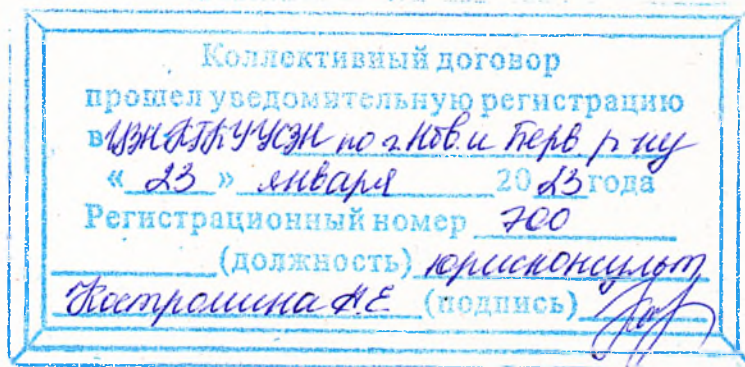 Коллективный договор
прошел уведомительную регистрацию
в ЦЗН КГКУ УСЗН по г. Нов. и Берв. р-ну
« 23 » января 2023 года
Регистрационный номер 700
(должность) юрисконсульт
Костромина А.Е (подпись)